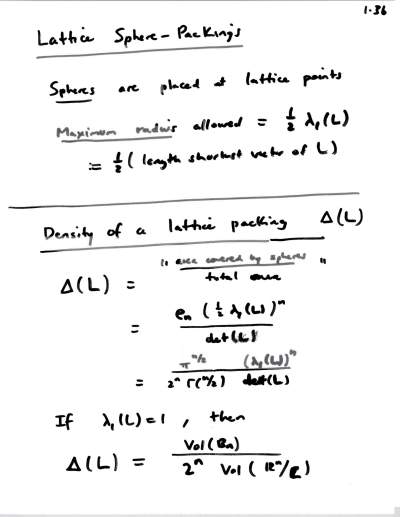 1.36
Lattice Sphere-Packings
Spheres are placed at lattice points
Maximum radius allowed = 1/2 λ₁(L)
= 1/2 ( length shortest vector of L )
Density of a lattice packing Δ(L)
Δ(L) = " area covered by spheres / total area "
= eₙ (1/2 λ₁(L))ⁿ / det(L)
= π^(n/2) (λ₁(L))ⁿ / 2ⁿ Γ(n/2) det(L)
If λ₁(L) = 1, then
Δ(L) = Vol(Bₙ) / 2ⁿ Vol(ℝⁿ/L)